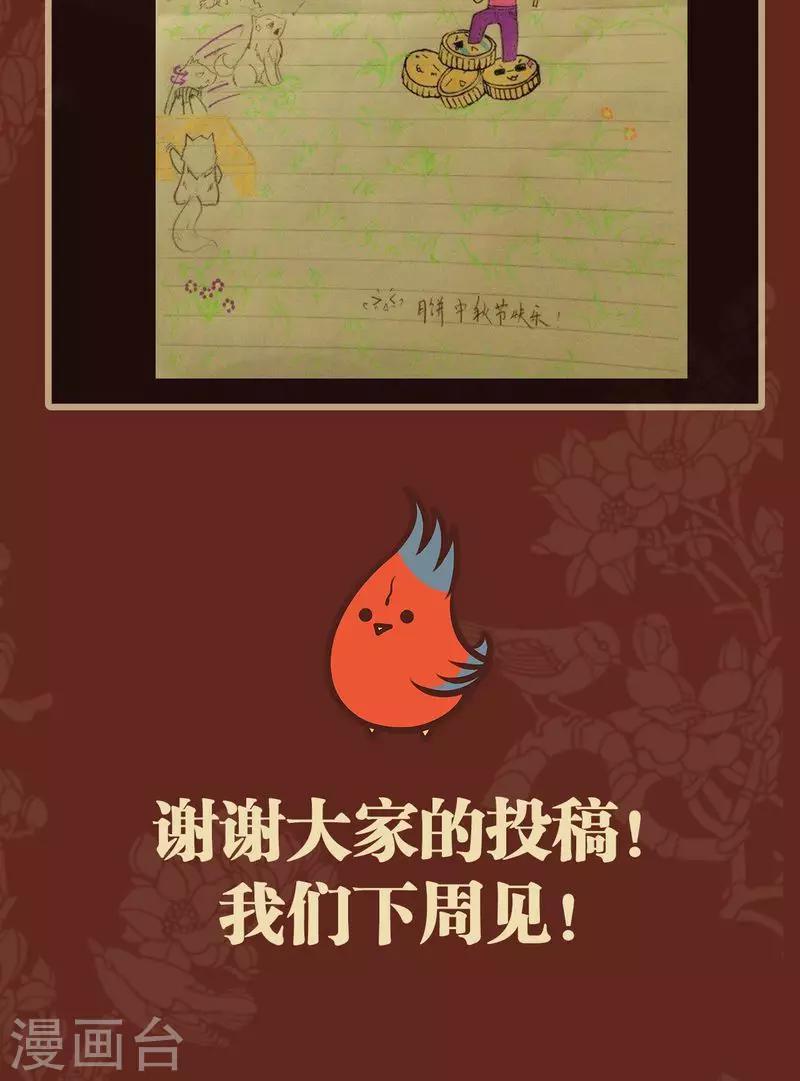 月饼中秋节快乐!
谢谢大家的投稿!
我们下周见!
漫画台